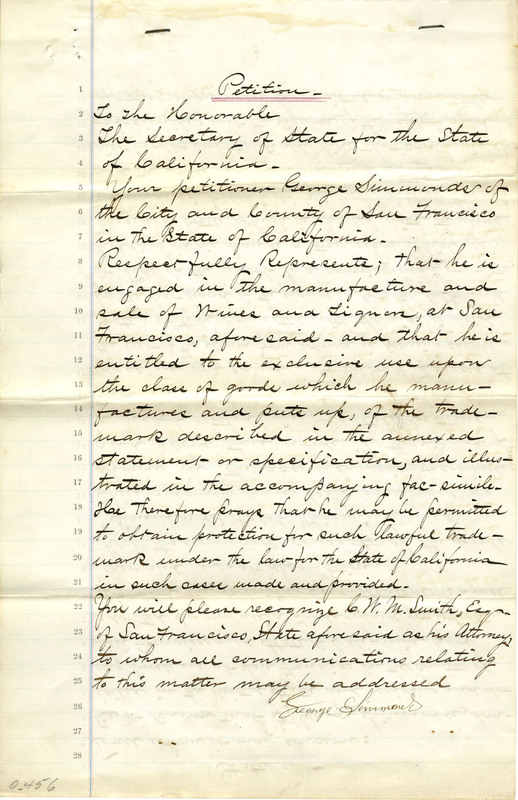 Petition -
To the Honorable
The Secretary of State for the State
of California -
Your petitioner George Simmonds of
the City and County of San Francisco
in the State of California -
Respectfully Represents; that he is
engaged in the manufacture and
sale of Wines and Liquors, at San
Francisco, aforesaid - and that he is
entitled to the exclusive use upon
the class of goods which he manu-
factures and puts up, of the trade-
mark described in the annexed
statement or specification, and illus-
trated in the accompanying fac-simile.
He therefore prays that he may be permitted
to obtain protection for such lawful trade-
mark under the law for the State of California
in such cases made and provided -
You will please recognize C. W. M. Smith, Esqr-
of San Francisco, State aforesaid as his Attorney,
to whom all communications relating
to this matter may be addressed
George Simmonds
1
2
3
4
5
6
7
8
9
10
11
12
13
14
15
16
17
18
19
20
21
22
23
24
25
26
27
28
0-456